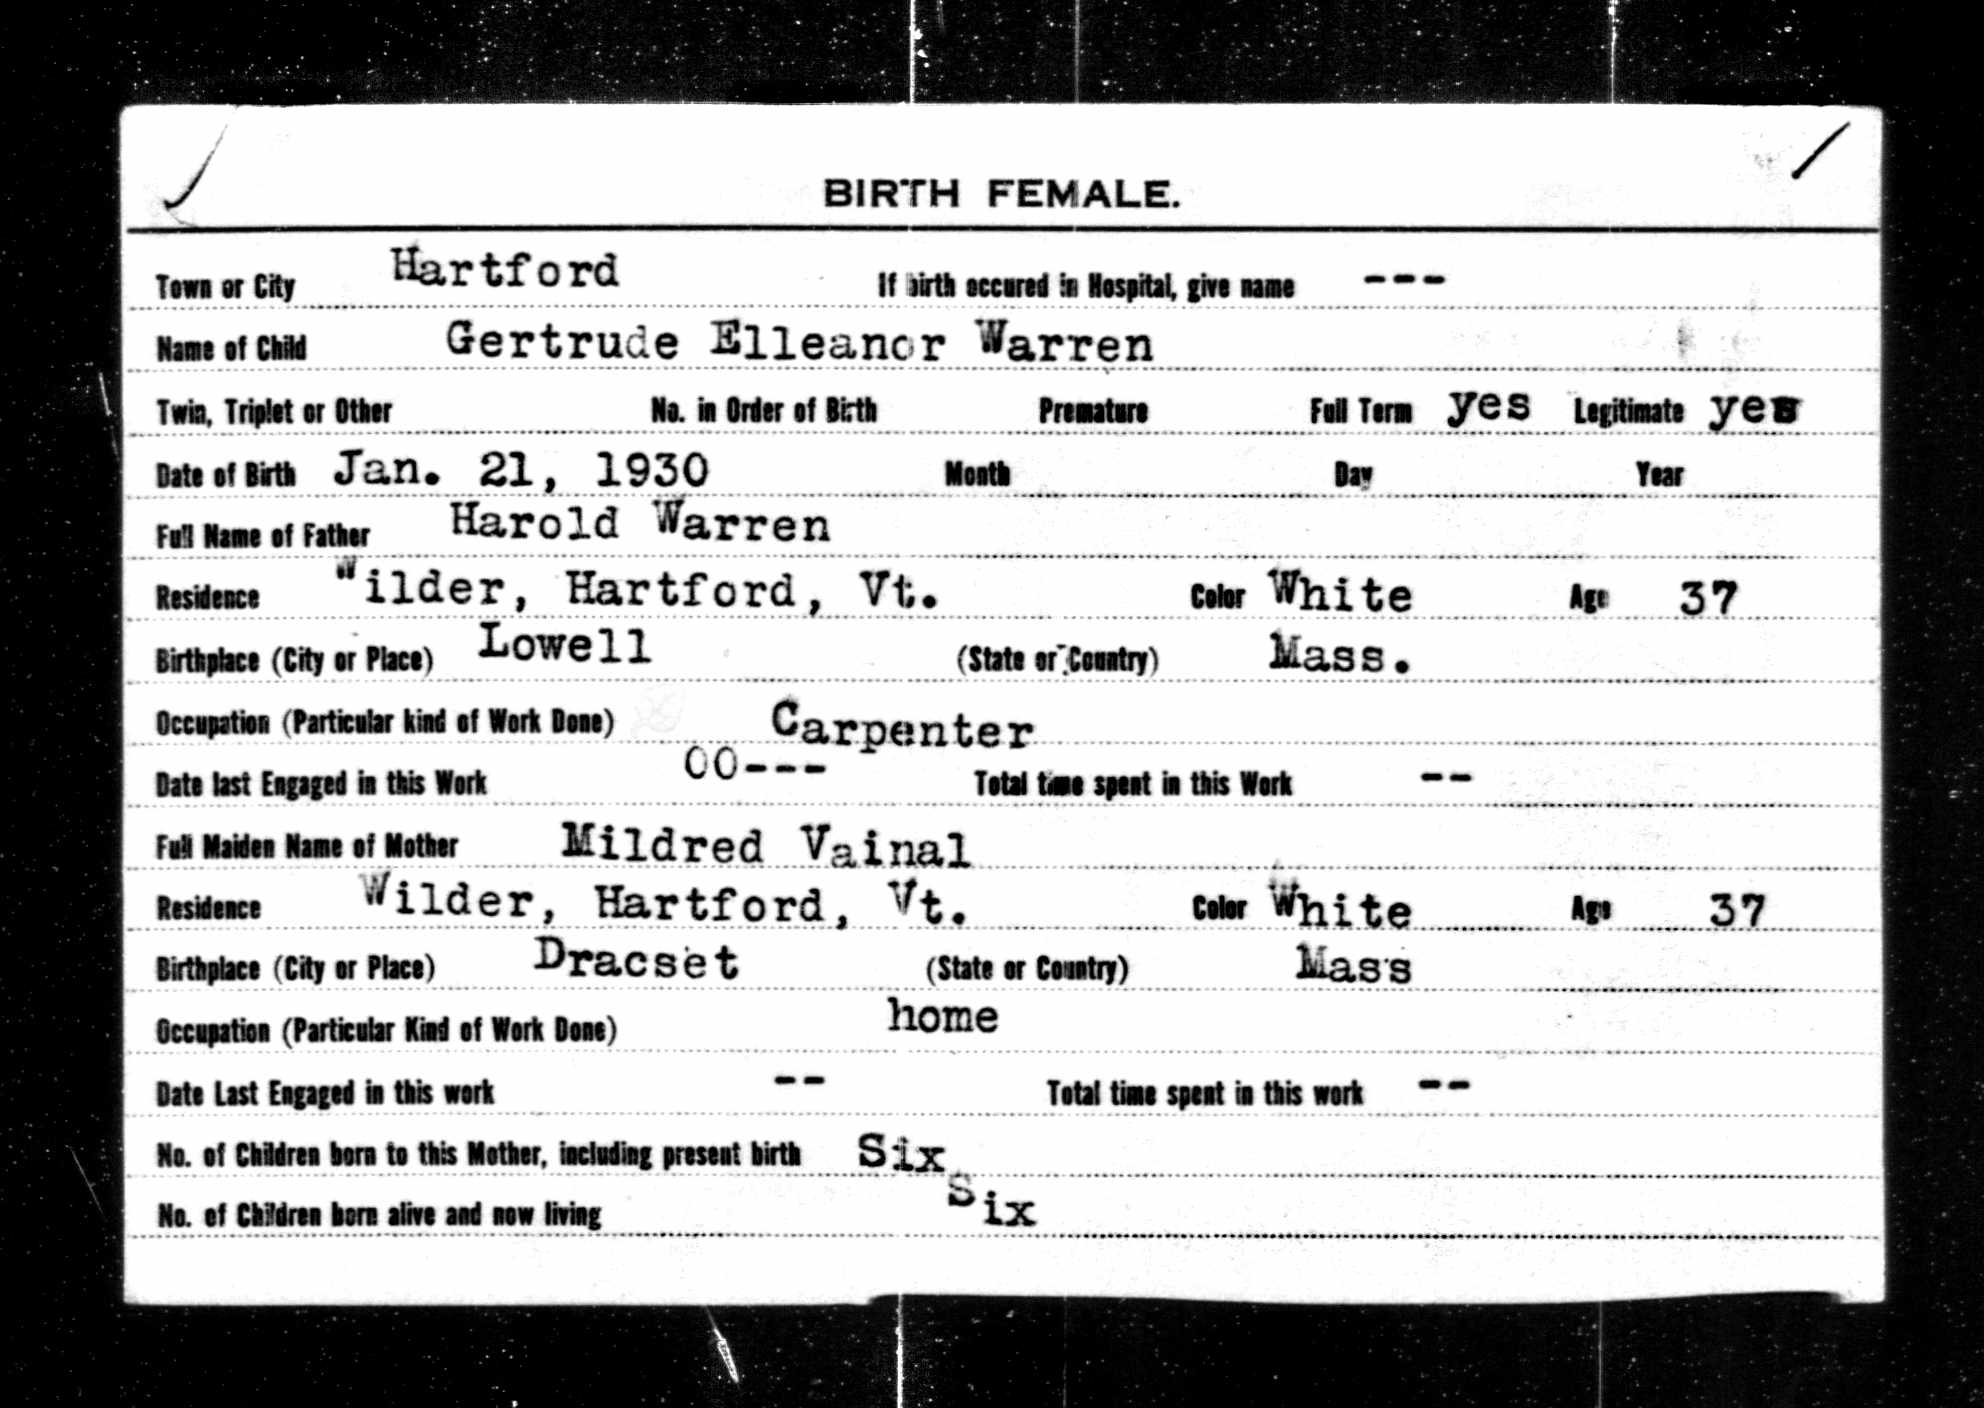 BIRTH FEMALE.
Town or City Hartford If birth occured in Hospital, give name ---
Name of Child Gertrude Elleanor Warren
Twin, Triplet or Other No. in Order of Birth Premature Full Term yes Legitimate yes
Date of Birth Jan. 21, 1930 Month Day Year
Full Name of Father Harold Warren
Residence Wilder, Hartford, Vt. Color White Age 37
Birthplace (City or Place) Lowell (State or Country) Mass.
Occupation (Particular kind of Work Done) Carpenter
Date last Engaged in this Work 00--- Total time spent in this Work --
Full Maiden Name of Mother Mildred Vainal
Residence Wilder, Hartford, Vt. Color White Age 37
Birthplace (City or Place) Dracset (State or Country) Mass
Occupation (Particular Kind of Work Done) home
Date Last Engaged in this work -- Total time spent in this work --
No. of Children born to this Mother, including present birth Six
No. of Children born alive and now living Six